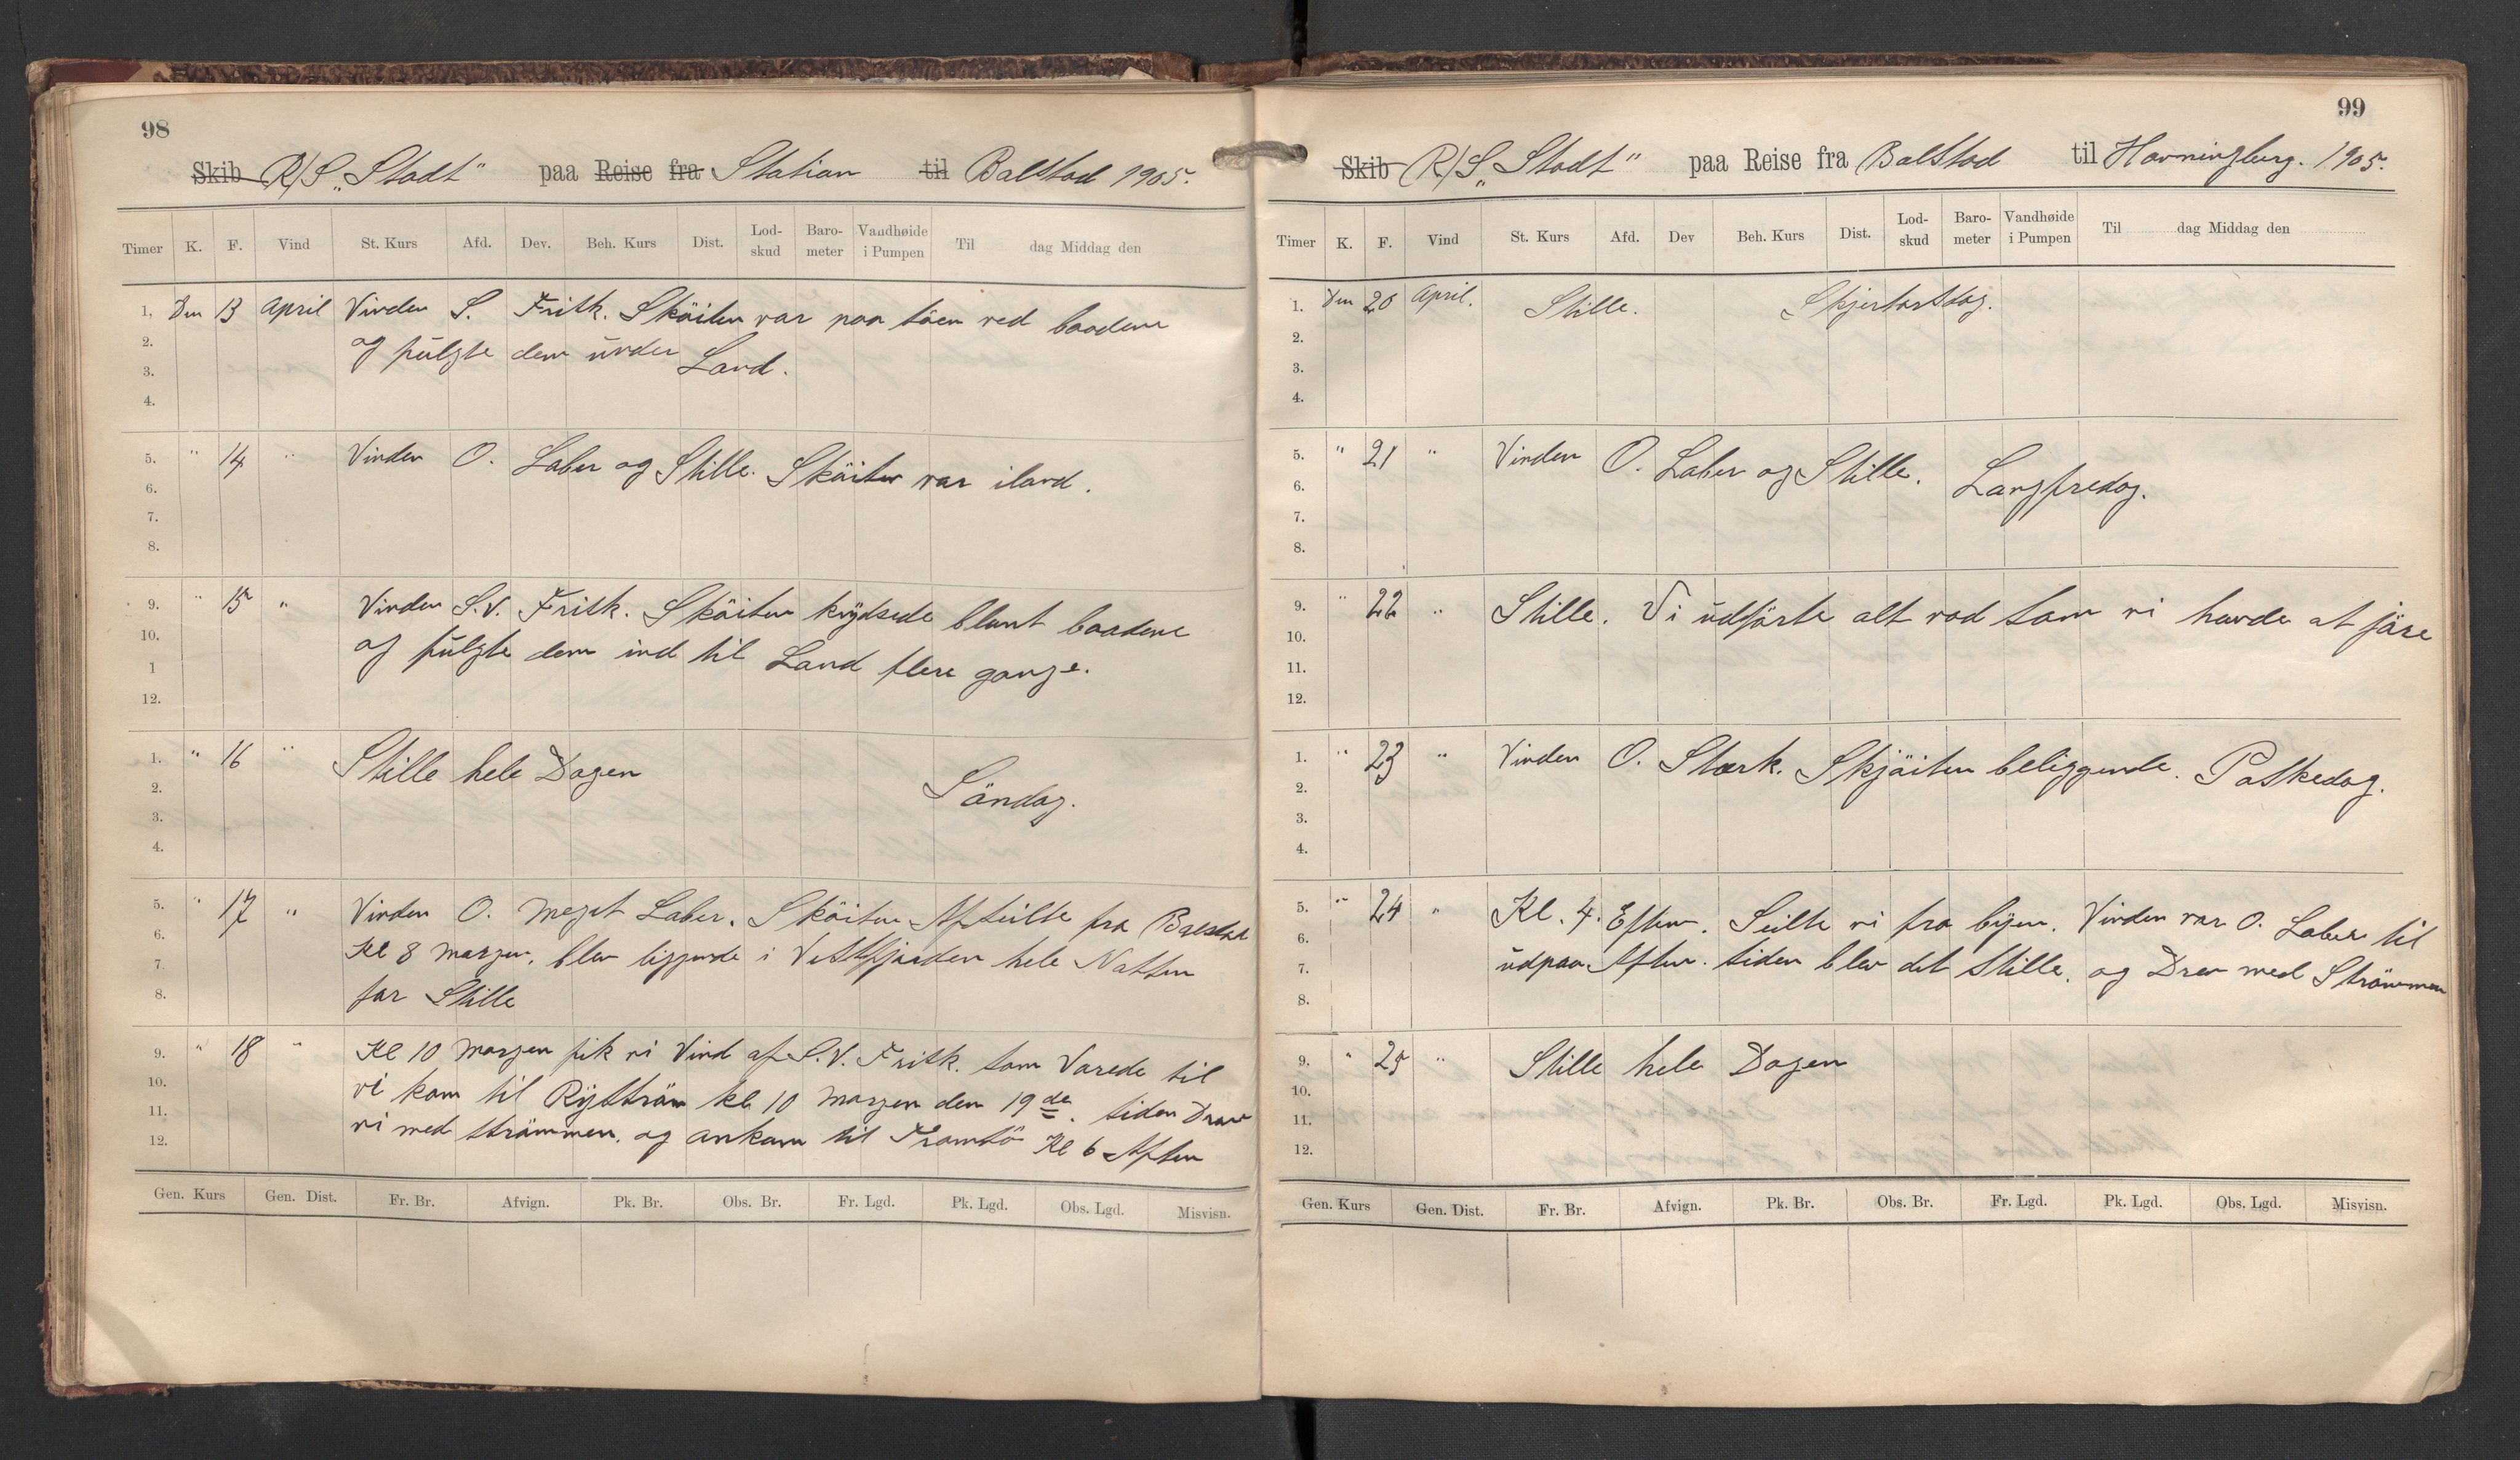 98
Skib R/S „Stadt" paa Reise fra Station til Balstad 1905.
Timer K. F. Vind St. Kurs Afd. Dev. Beh. Kurs Dist. Lod-skud Baro-meter Vandhøide i Pumpen Til dag Middag den
1. Den 13 April Vinden S. Frisk. Sköiten var paa söen ved baadene
2. og fulgte dem under Land.
3.
4.
5. " 14 " Vinden O. Laber og Stille. Sköiten var iland.
6.
7.
8.
9. " 15 " Vinden S.V. Frisk. Sköiten krydsede blant baadene
10. og fulgte dem ind til Land flere gange.
1
12.
1. " 16 " Stille hele Dagen
2. Söndag.
3.
4.
5. " 17 " Vinden O. meget Laber. Sköiten Afseilte fra Balstad
6. Kl 8 morgen. blev liggende i Vestfjorden hele Natten
7.
8. for Stille
9. " 18 " Kl 10 morgen fik vi Vind af S.V. Frisk. som Varede til
10. vi kom til Rystström kl 10 morgen den 19de. siden Drev
11. vi med strömmen. og ankom til Tromsö Kl 6 Aften
12.
Gen. Kurs Gen. Dist. Fr. Br. Afvign. Pk. Br. Obs. Br. Fr. Lgd. Pk. Lgd. Obs. Lgd. Misvisn.
99
Skib R/S „Stadt" paa Reise fra Balstad til Havningberg. 1905.
Timer K. F. Vind St. Kurs Afd. Dev Beh. Kurs Dist. Lod-skud Baro-meter Vandhøide i Pumpen Til dag Middag den
1. Den 20 April. Stille. Skjertorsdag.
2.
3.
4.
5. " 21 " Vinden O. Laber og Stille. Langfredag.
6.
7.
8.
9. " 22 " Stille. Vi udförte alt vad som vi havde at jöre
10.
11.
12.
1. " 23 " Vinden O. Stærk. Skjöiten beliggende. Paskedag.
2.
3.
4.
5. " 24 " Kl. 4. Eftem. Seilte vi fra byen. Vinden var O. Laber til
6.
7. udpaa Aften. siden blev det Stille. og Drev med Strömmen
8.
9. " 25 " Stille hele Dagen
10.
11.
12.
Gen. Kurs Gen. Dist. Fr. Br. Afvign. Pk. Br. Obs. Br. Fr. Lgd. Pk. Lgd. Obs. Lgd. Misvisn.